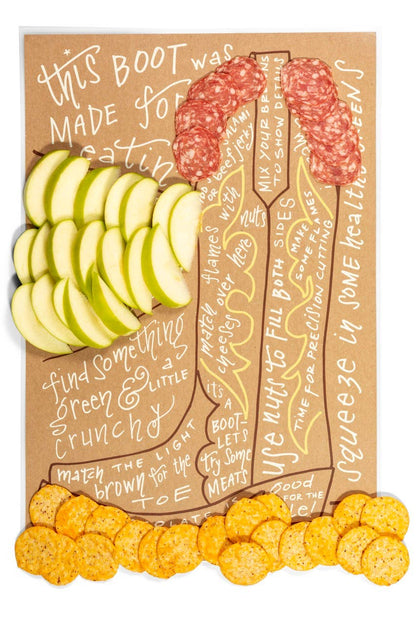 this BOOT was
MADE for
eatin
SALAMI
OR beef jerky
MIX YOUR BRINGS
TO SHOW DETAILS
match flames with nuts
cheeses over here
USE nuts to FILL BOTH SIDES
MAKE
SOME FLAMES
TIME FOR PRECISION CUTTING
squeeze in SOME healthy GREENS
find something
green & a
LITTLE
crunchy
it's
A
BOOT-
LETS
try some
MEATS
match THE LIGHT
brown for the
TOE
Good
FOR THE